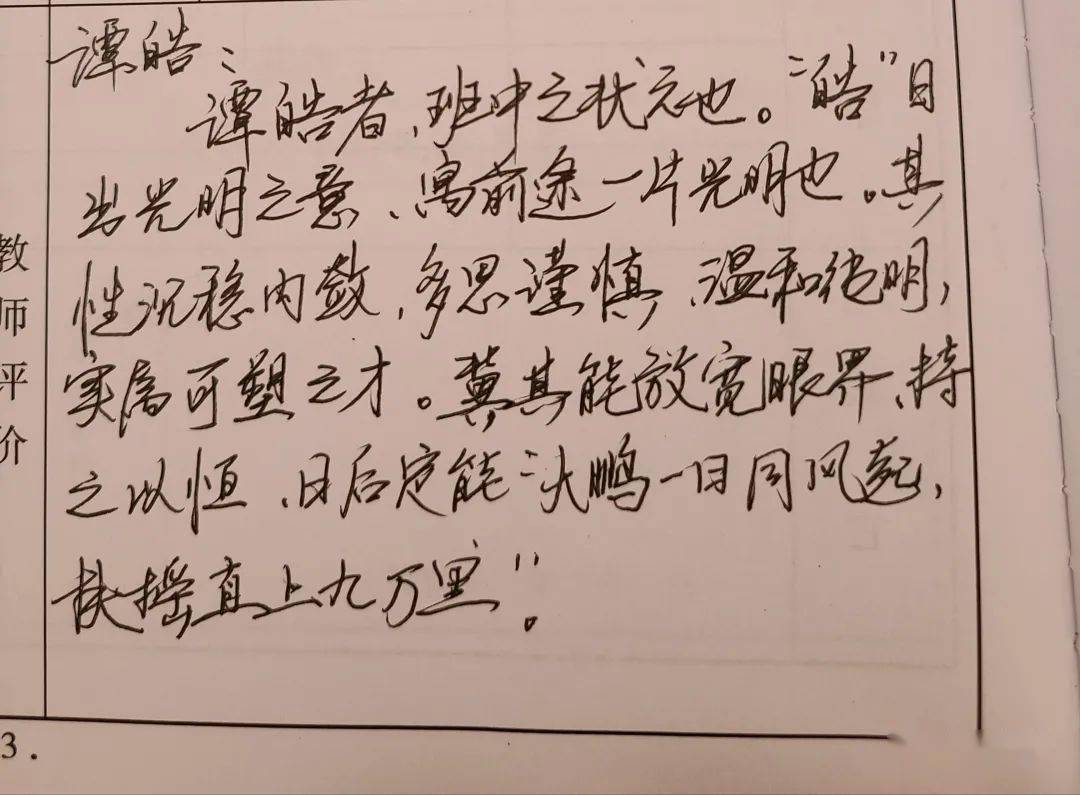 谭皓：
谭皓者，班中之状元也。“皓”日
出光明之意，寓前途一片光明也。其
性沉稳内敛，多思谨慎，温和纯明，
实属可塑之才。冀其能放宽眼界，持
之以恒，日后定能“大鹏一日同风起，
扶摇直上九万里”。
教
师
评
价
3.